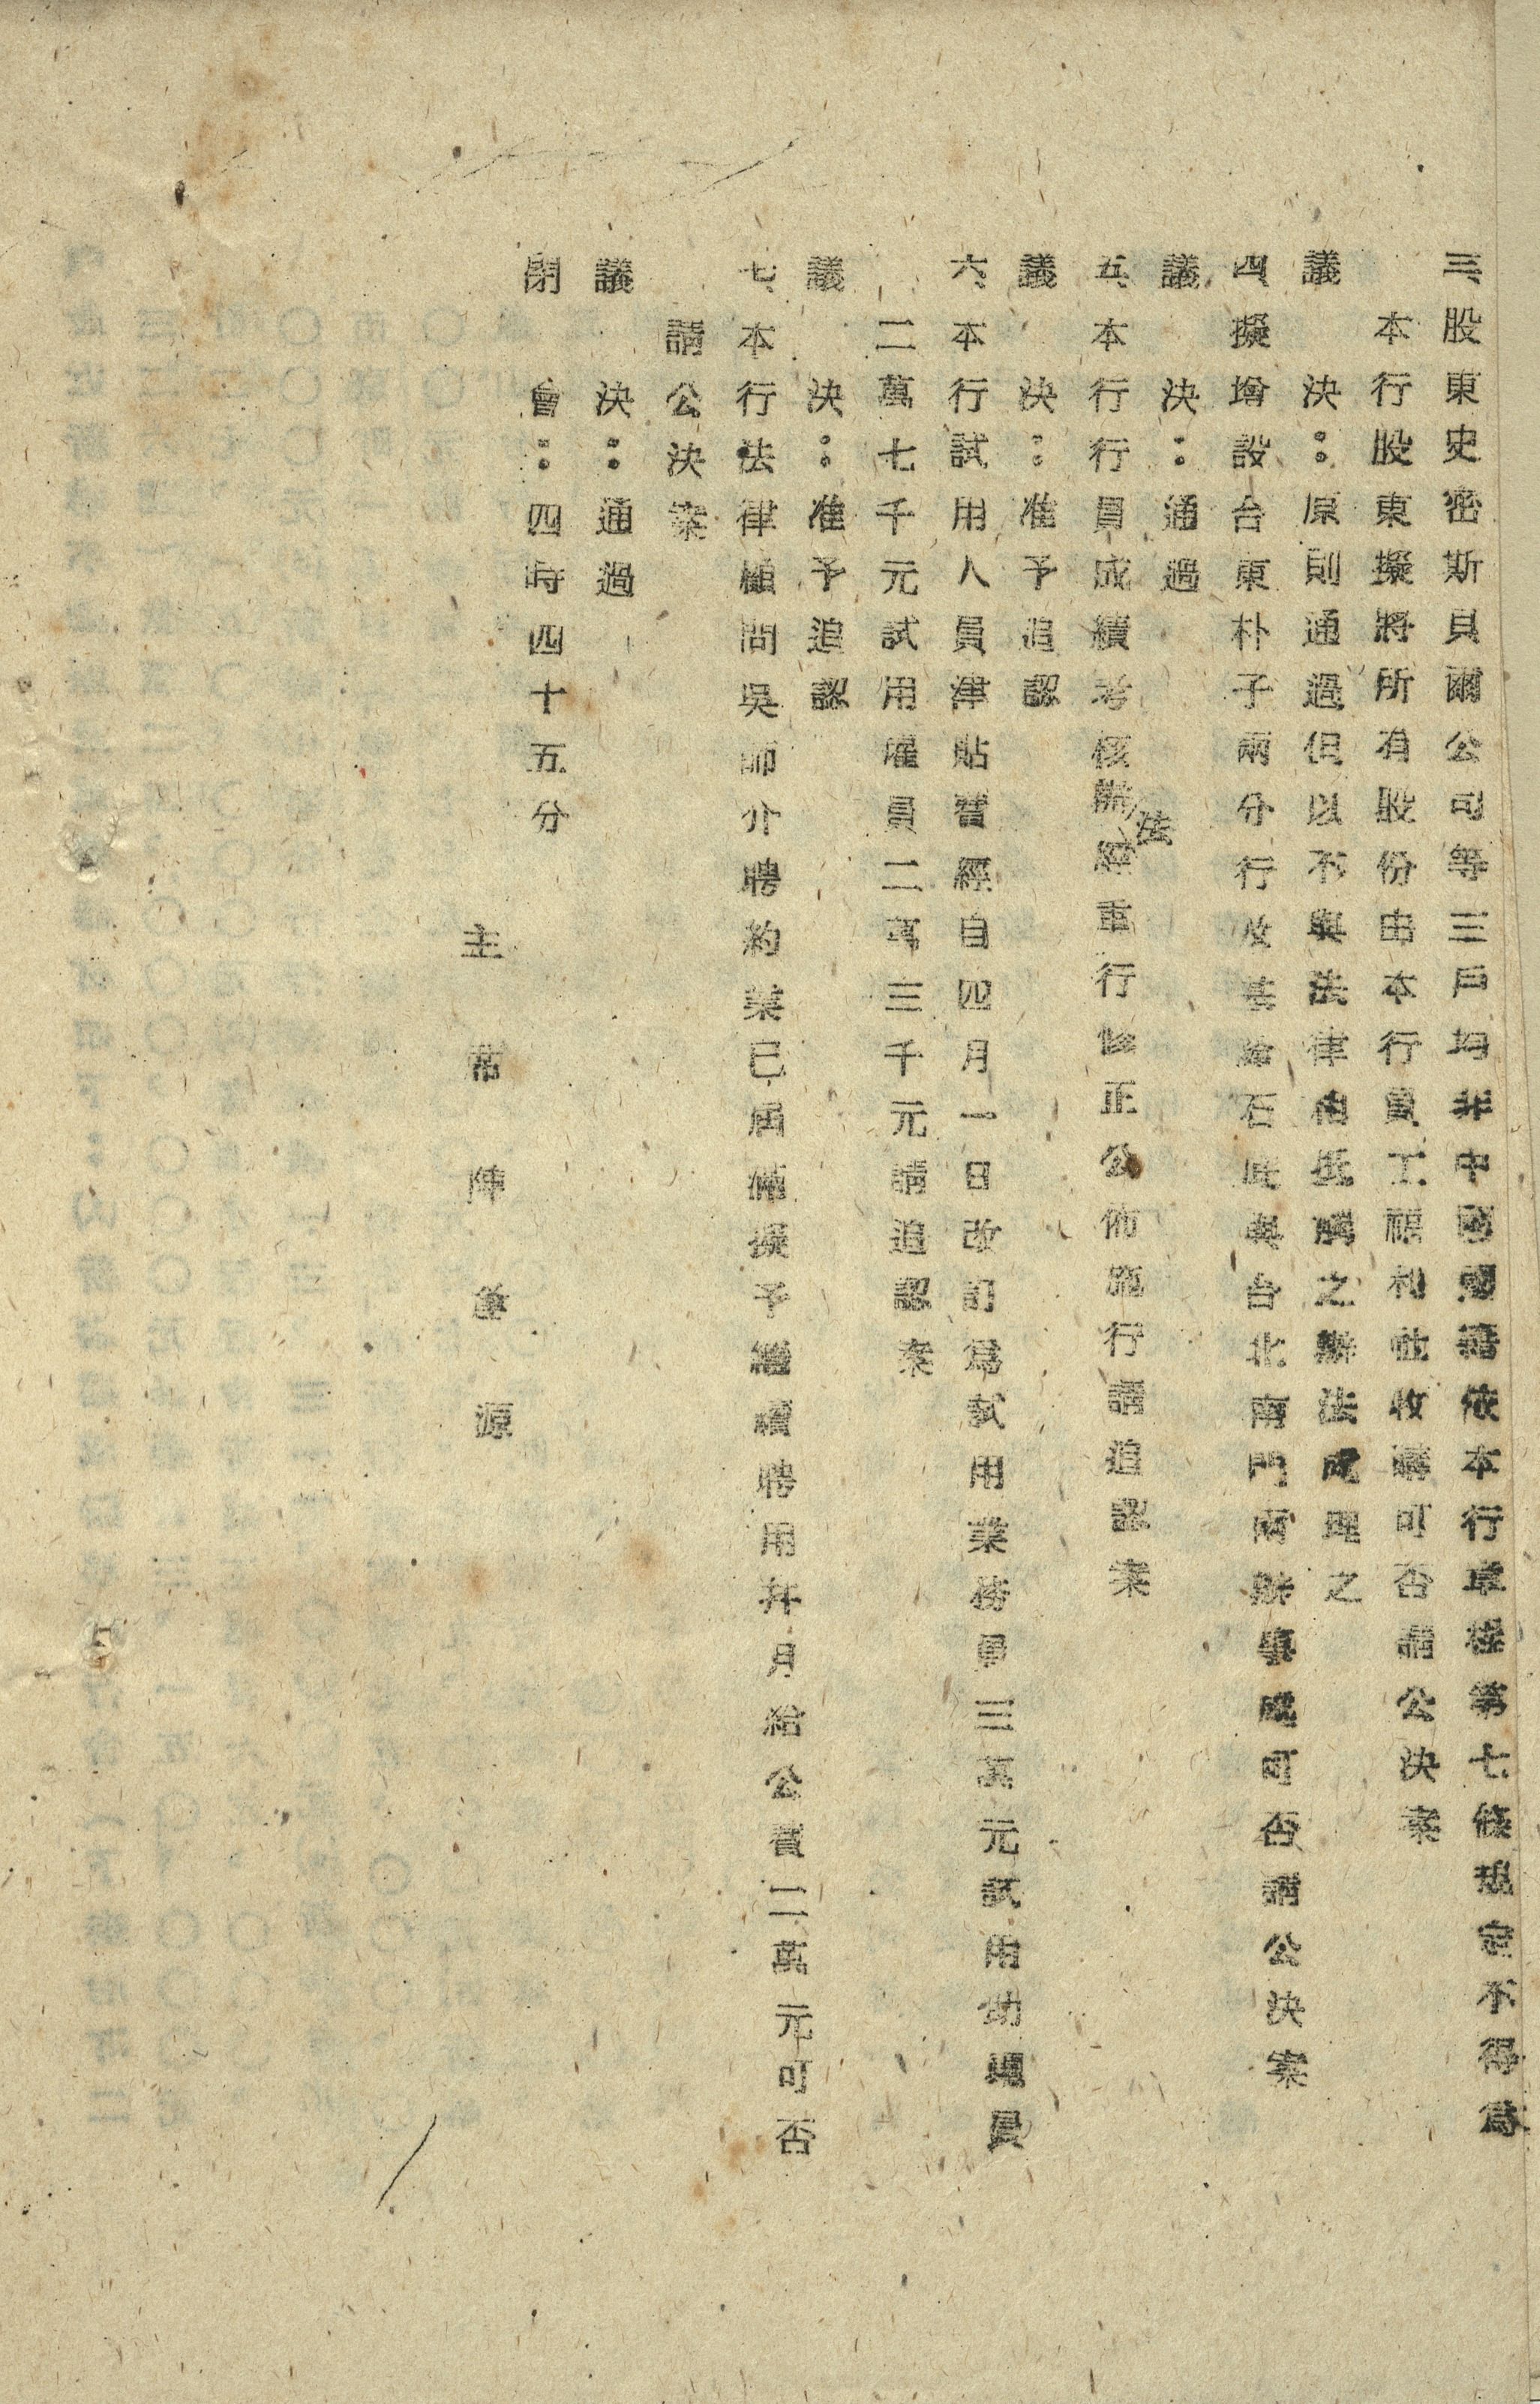 三、股東史密斯貝爾公司等三戶均非中國國籍依本行章程第七條規定不得為
本行股東擬將所有股份由本行員工福利社收購可否請公決案
議決：原則通過但以不與法律相抵觸之辦法處理之
四、擬增設台東朴子兩分行及基隆石底與台北南門兩辦事處可否請公決案
議決：通過
五、本行行員成績考核辦法經重行修正公佈施行請追認案
議決：准予追認
六、本行試用人員津貼費經自四月一日改訂為試用業務員三萬元試用助理員
二萬七千元試用雇員二萬三千元請追認案
議決：准予追認
七、本行法律顧問吳師介聘約業已屆滿擬予繼續聘用并月給公費二萬元可否
請公決案
議決：通過
閉會：四時四十五分
主席陳逢源